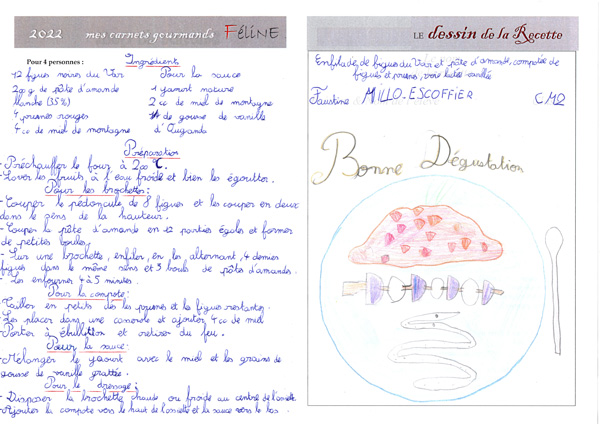 2022 mes carnets gourmands FéLiNE
Pour 4 personnes :
Ingrédients
12 figues noires du Var
200 g de pâte d'amande
blanche (35%)
4 prunes rouges
4 cc de miel de montagne
Pour la sauce
1 yaourt nature
2 cc de miel de montagne
de gousse de vanille
d'Ouganda
Préparation
- Préchauffer le four à 200 °C.
- Laver les fruits à l'eau froide et bien les égoutter.
Pour les brochettes:
- Couper le pédoncule de 8 figues et les couper en deux
dans le sens de la hauteur.
- Couper la pâte d'amande en 12 parties égales et former
de petites boules.
- Sur une brochette, enfiler, en les alternant, 4 demies
figues dans le même sens et 3 boules de pâte d'amandes.
- Les enfourner 4 à 5 minutes.
Pour la compote:
- Tailler en petits dés les prunes et les figues restantes.
- Les placer dans une casserole et ajouter 4 cc de miel
- Porter à ébullition et retirer du feu.
Pour la sauce:
- Mélanger le yaourt avec le miel et les grains de
gousse de vanille grattée.
Pour le dressage:
- Disposer la brochette chaude ou froide au centre de l'assiette
- Ajouter la compote vers le haut de l'assiette et la sauce vers le bas.
LE dessin de la Recette
Enfilade de figues du Var et pâte d'amande, compotée de
figues et prunes, voie lactée vanillée
Faustine MILLO-ESCOFFIER CM2
Bonne Dégustation